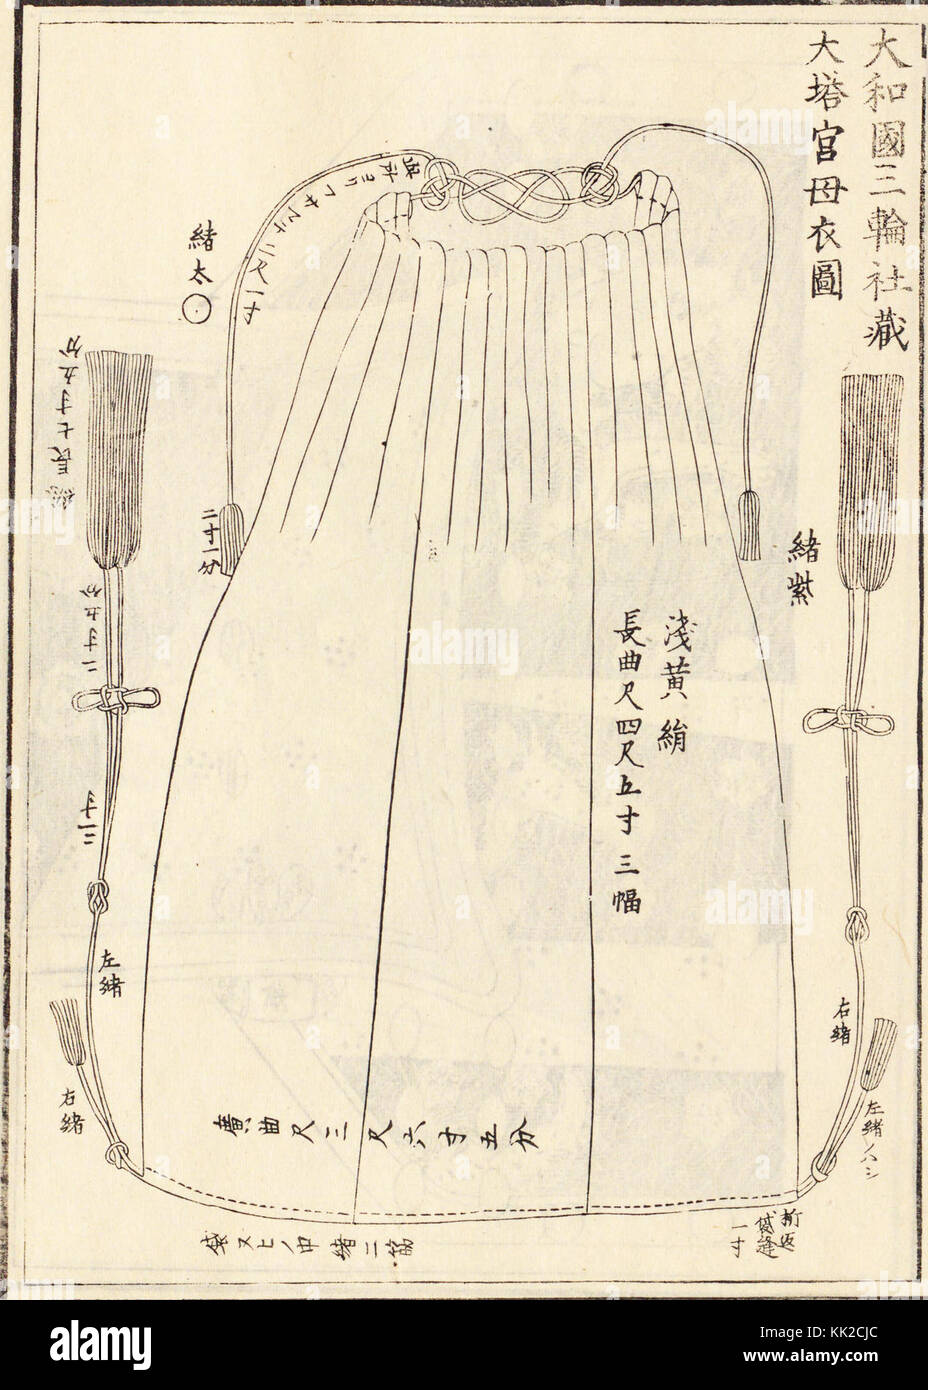 大和國三輪社蔵
大塔宮母衣圖
緒紫
浅黄絹
長曲尺四尺五寸三幅
緒太
二尺一寸
二寸一分
総長七寸五分
二寸五分
二寸
左緒
右緒
右緒
左緒ノハシ
廣曲尺三尺六寸五分
折返
袋縫
一寸
袋ヌヒノ中緒二筋
alamy
alamy
alamy
alamy
Image ID: KK2CJC
www.alamy.com